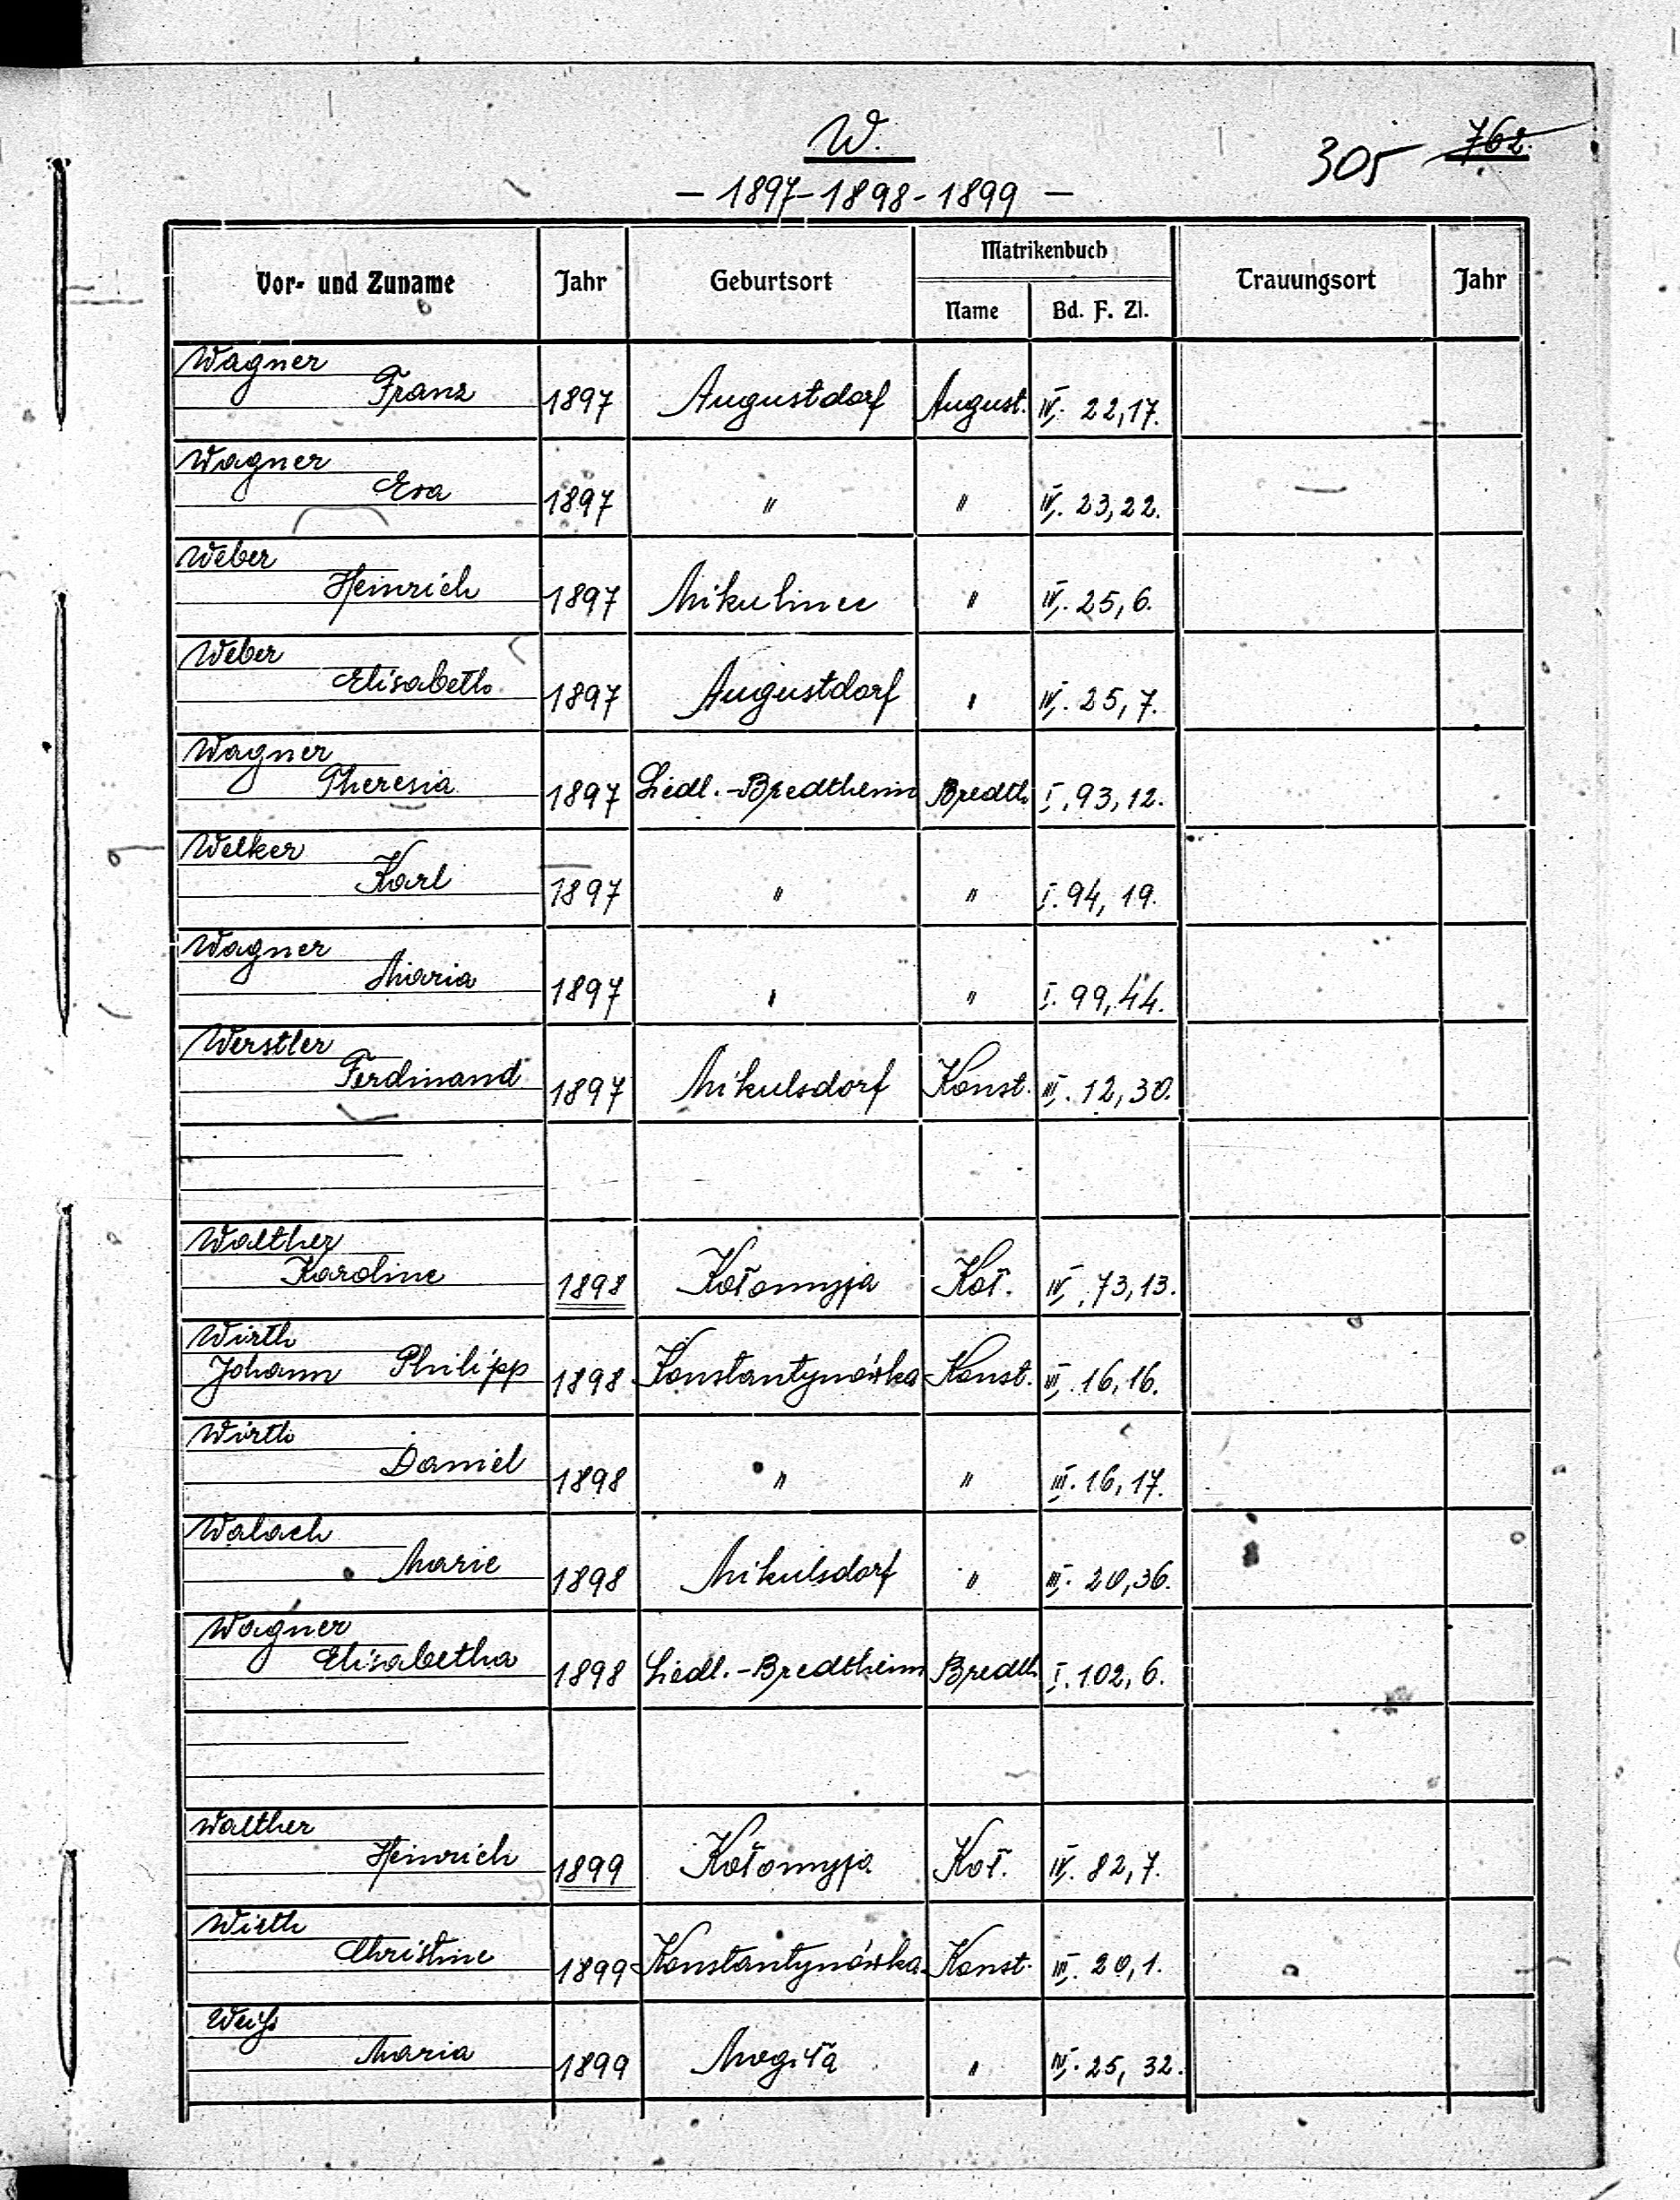 W.
305 762.
- 1897-1898-1899 -
Vor- und Zuname Jahr Geburtsort Matrikenbuch Trauungsort Jahr
Name Bd. F. Zl.
Wagner
Franz 1897 Augustdorf August. IV. 22,17.
Wagner
Eva 1897 " " IV. 23,22.
Weber
Heinrich 1897 Mikulince " IV. 25,6.
Weber
Elisabeth 1897 Augustdorf " IV. 25,7.
Wagner
Theresia 1897 Siedl.-Bredtheim Bredth I. 93,12.
Welker
Karl 1897 " " I. 94, 19.
Wagner
Maria 1897 " " I. 99,44.
Werstler
Ferdinand 1897 Mikulsdorf Konst. III. 12,30.
Walther
Karoline 1898 Kołomyja Koł. IV. 73,13.
Wirth
Johann Philipp 1898 Konstantynówka Konst. III. 16,16.
Wirth
Daniel 1898 " " III. 16,17.
Walach
Marie 1898 Mikulsdorf " III. 20,36.
Wagner
Elisabetha 1898 Siedl.-Bredtheim Bredth I. 102,6.
Walther
Heinrich 1899 Kołomyja Koł. IV. 82,7.
Wirth
Christine 1899 Konstantynówka Konst. III. 20,1.
Weiß
Maria 1899 Mogiła " IV. 25, 32.